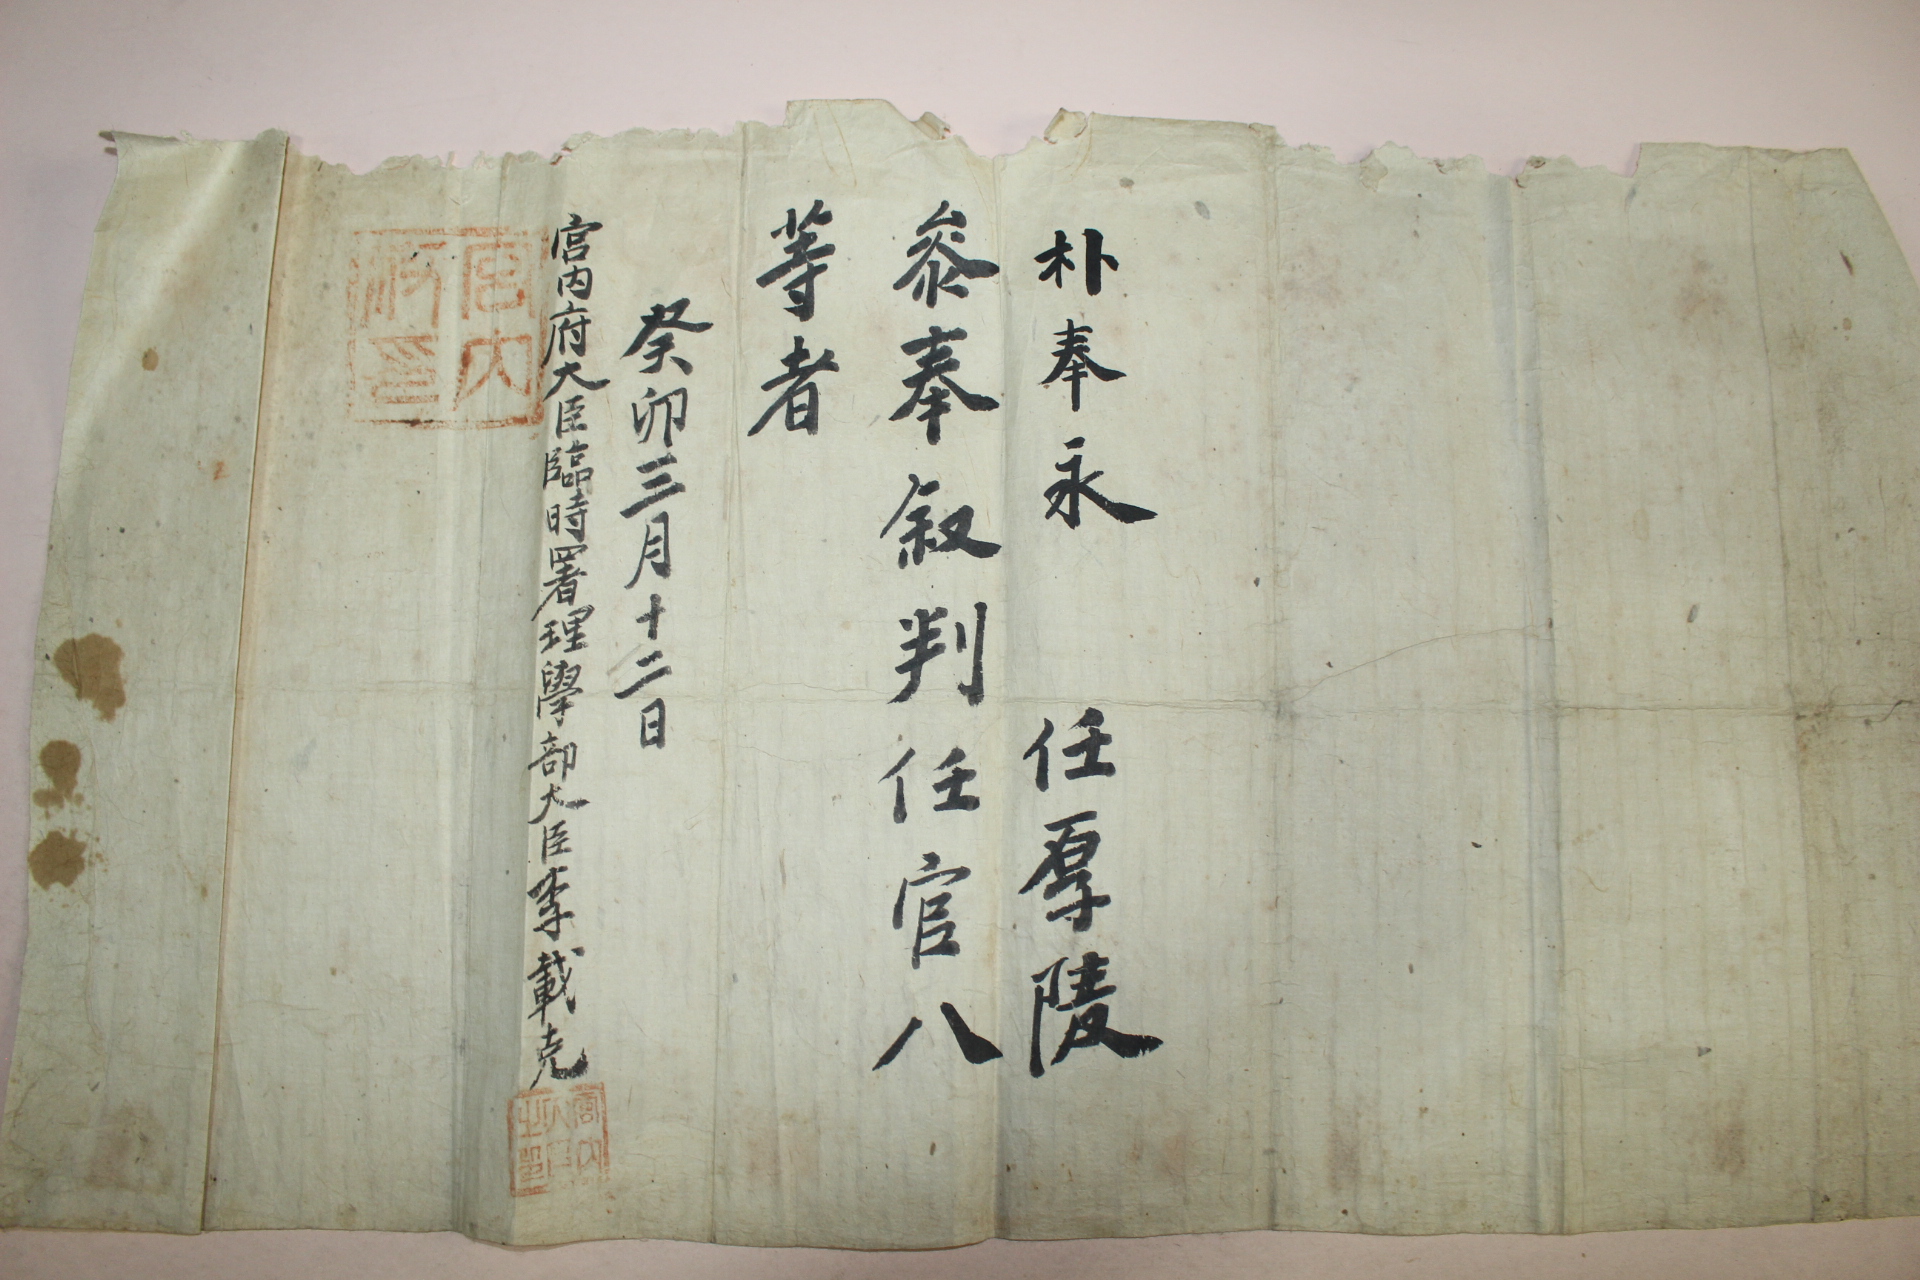 朴奉永　任厚陵
叅奉叙判任官八
等者
癸卯三月十二日
宮內府大臣臨時署理學部大臣李載克
宮內府印
宮內大臣之印